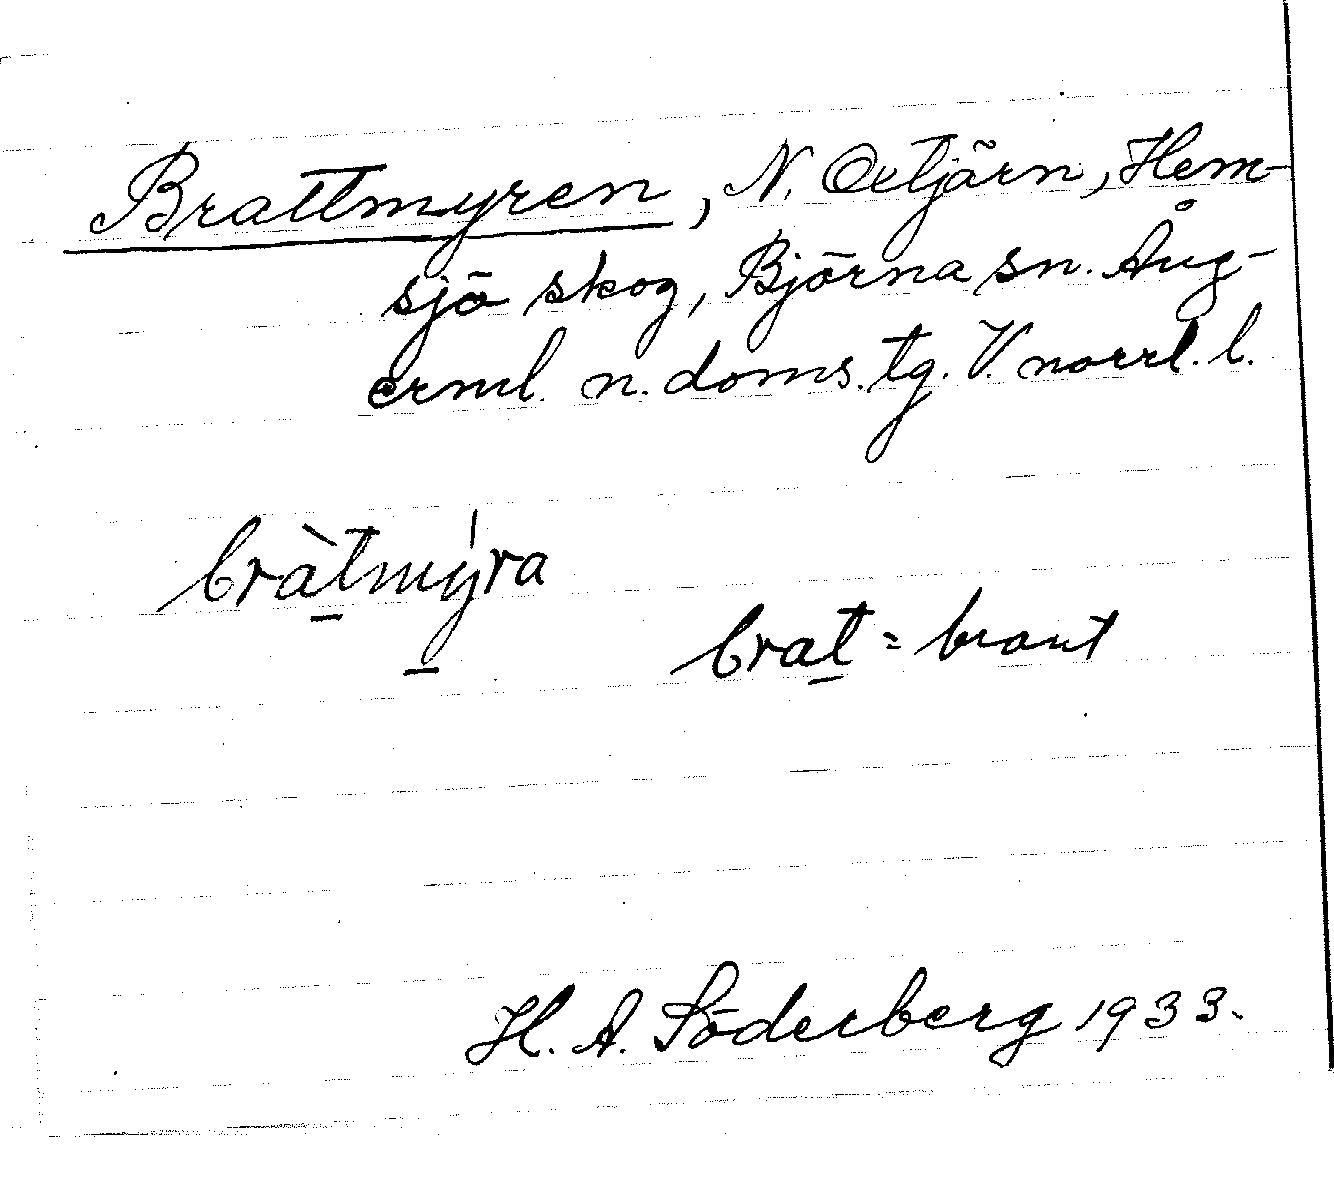 Brattmyren, N. Oxtjärn, Hem-
sjö skog, Björna sn. Ång-
erml. n. doms. tg. V. norrl. l.
bràtmýra
brat = brant
H. A. Söderberg 1933.